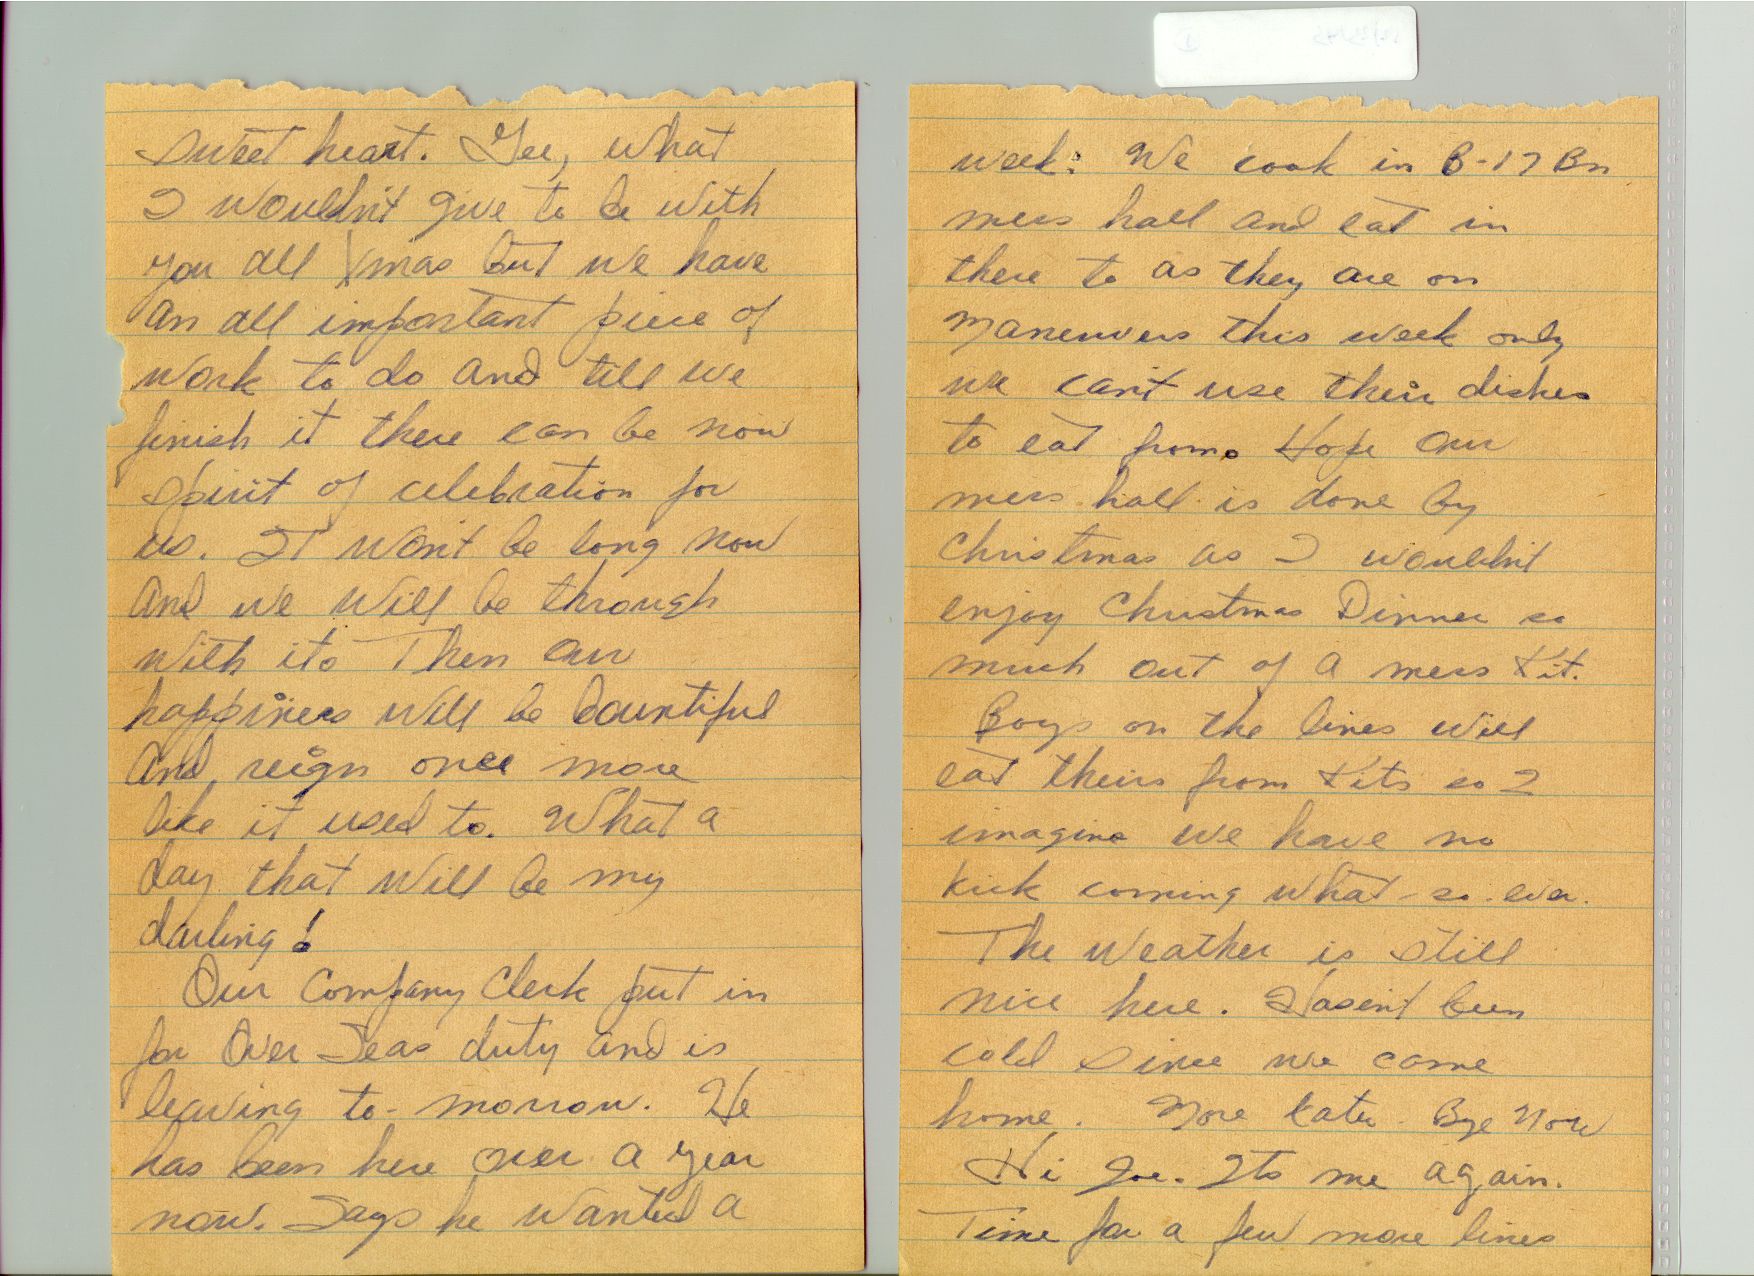 sweet heart. Gee, what
I wouldn't give to be with
you all Xmas but we have
an all important piece of
work to do and till we
finish it there can be now
spirit of celebration for
us. It won't be long now
and we will be through
with it. Then our
happiness will be bountiful
and reign once more
like it used to. What a
day that will be my
darling!
Our Company Clerk put in
for Over Seas duty and is
leaving to-morrow. He
has been here over a year
now. Says he wanted a
week: We cook in B-17 Bn
mess hall and eat in
there to as they are on
maneuvers this week only
we can't use their dishes
to eat from. Hope our
mess hall is done by
Christmas as I wouldn't
enjoy Christmas Dinner so
much out of a mess kit.
Boys on the lines will
eat theirs from kits so I
imagine we have no
kick coming what-so-ever.
The weather is still
nice here. Hasn't been
cold since we came
home. More later. Bye Now
Hi Joe. Its me again.
Time for a few more lines